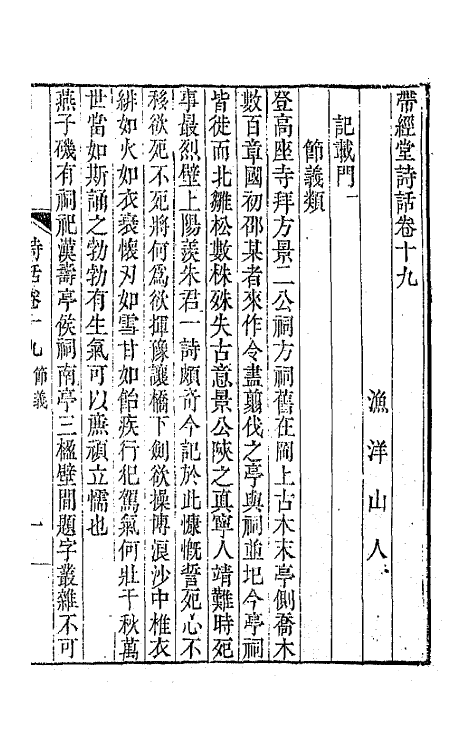 帶經堂詩話卷十九
漁洋山人
記載門一
節義類
登高座寺拜方景二公祠方祠舊在岡上古木末亭側喬木
數百章國初邵某者來作令盡翦伐之亭與祠並圯今亭祠
皆徙而北雛松數株殊失古意景公陝之真寧人靖難時死
事最烈壁上陽羨朱君一詩頗奇今記於此慷慨誓死心不
移欲死不死將何爲欲揮豫讓橋下劍欲操博浪沙中椎衣
緋如火如衣衰懷刃如雪甘如飴疾行犯駕氣何壯千秋萬
世當如斯誦之勃勃有生氣可以廉頑立懦也
燕子磯有祠祀漢壽亭侯祠南亭三楹壁間題字叢雜不可
詩話卷十九 節義 一